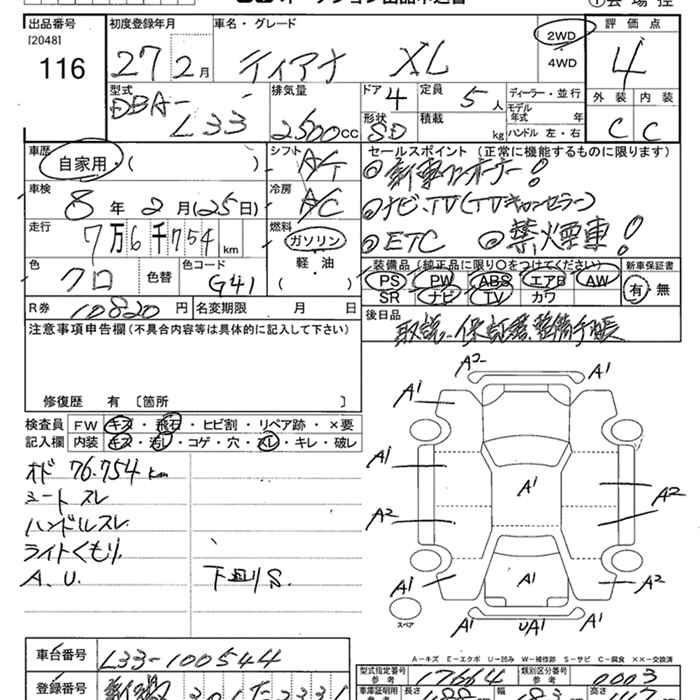 出品番号 初度登録年月 車名・グレード 評価点
[2048] 2WD
116 27 2月 ティアナ XL 4WD 4
型式 排気量 ドア 定員 ディーラー・並行 外装 内装
DBA- 4 5人 モデル年式 年
L33 2500cc 形状 SD 積載 kg ハンドル 左・右 C C
車歴 シフト セールスポイント (正常に機能するものに限ります)
自家用・( ) A/T ◎新車ワンオーナー!
車検 冷房 ◎ナビ.TV(TVキャンセラー)
8年2月(25日) A/C
走行 燃料 ◎ETC ◎禁煙車!
7万6千754km ガソリン
軽・油
色 色替 色コード ( )
クロ G41
装備品(純正品に限り○をつけてください) 新車保証書
PS PW ABS エアB AW 有・無
SR ナビ TV カワ
R券 10820円 名変期限 月 日
後日品
取説.保証書.整備手帳
注意事項申告欄(不具合内容等は具体的に記入して下さい)
修復歴 有 〔箇所 〕
検査員 FW キズ・飛石・ヒビ割・リペア跡・×要
記入欄 内装 キズ・汚レ・コゲ・穴・スレ・キレ・破レ
オド 76.754km
シート スレ
ハンドルスレ
ライトくもり
A.U. 下廻りS.
A2 A1
A1 A1
A1 A1 A2
A2
A1 A1 A2
A1 UA1 A1
スペア
A−キズ E−エクボ U−凹み W−補修跡 S−サビ C−腐食 ××−交換済
車台番号 L33-100544
型式指定番号 参考 17664 類別区分番号 参考 0003
登録番号
車庫証明用 参考 長さ 488 幅 183